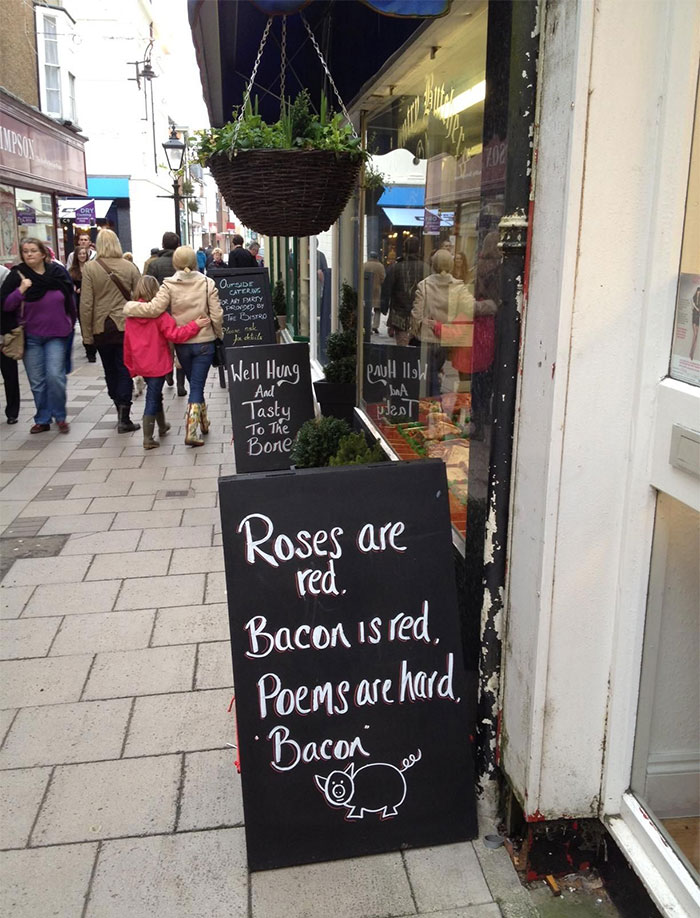 IMPSON
DRY
OUTSIDE
CATERING
FOR ANY PARTY
PROVIDED BY
THE BISTRO
Please ask
for details
Well Hung
And
Tasty
To The
Bone
Roses are
red.
Bacon is red.
Poems are hard.
"Bacon"